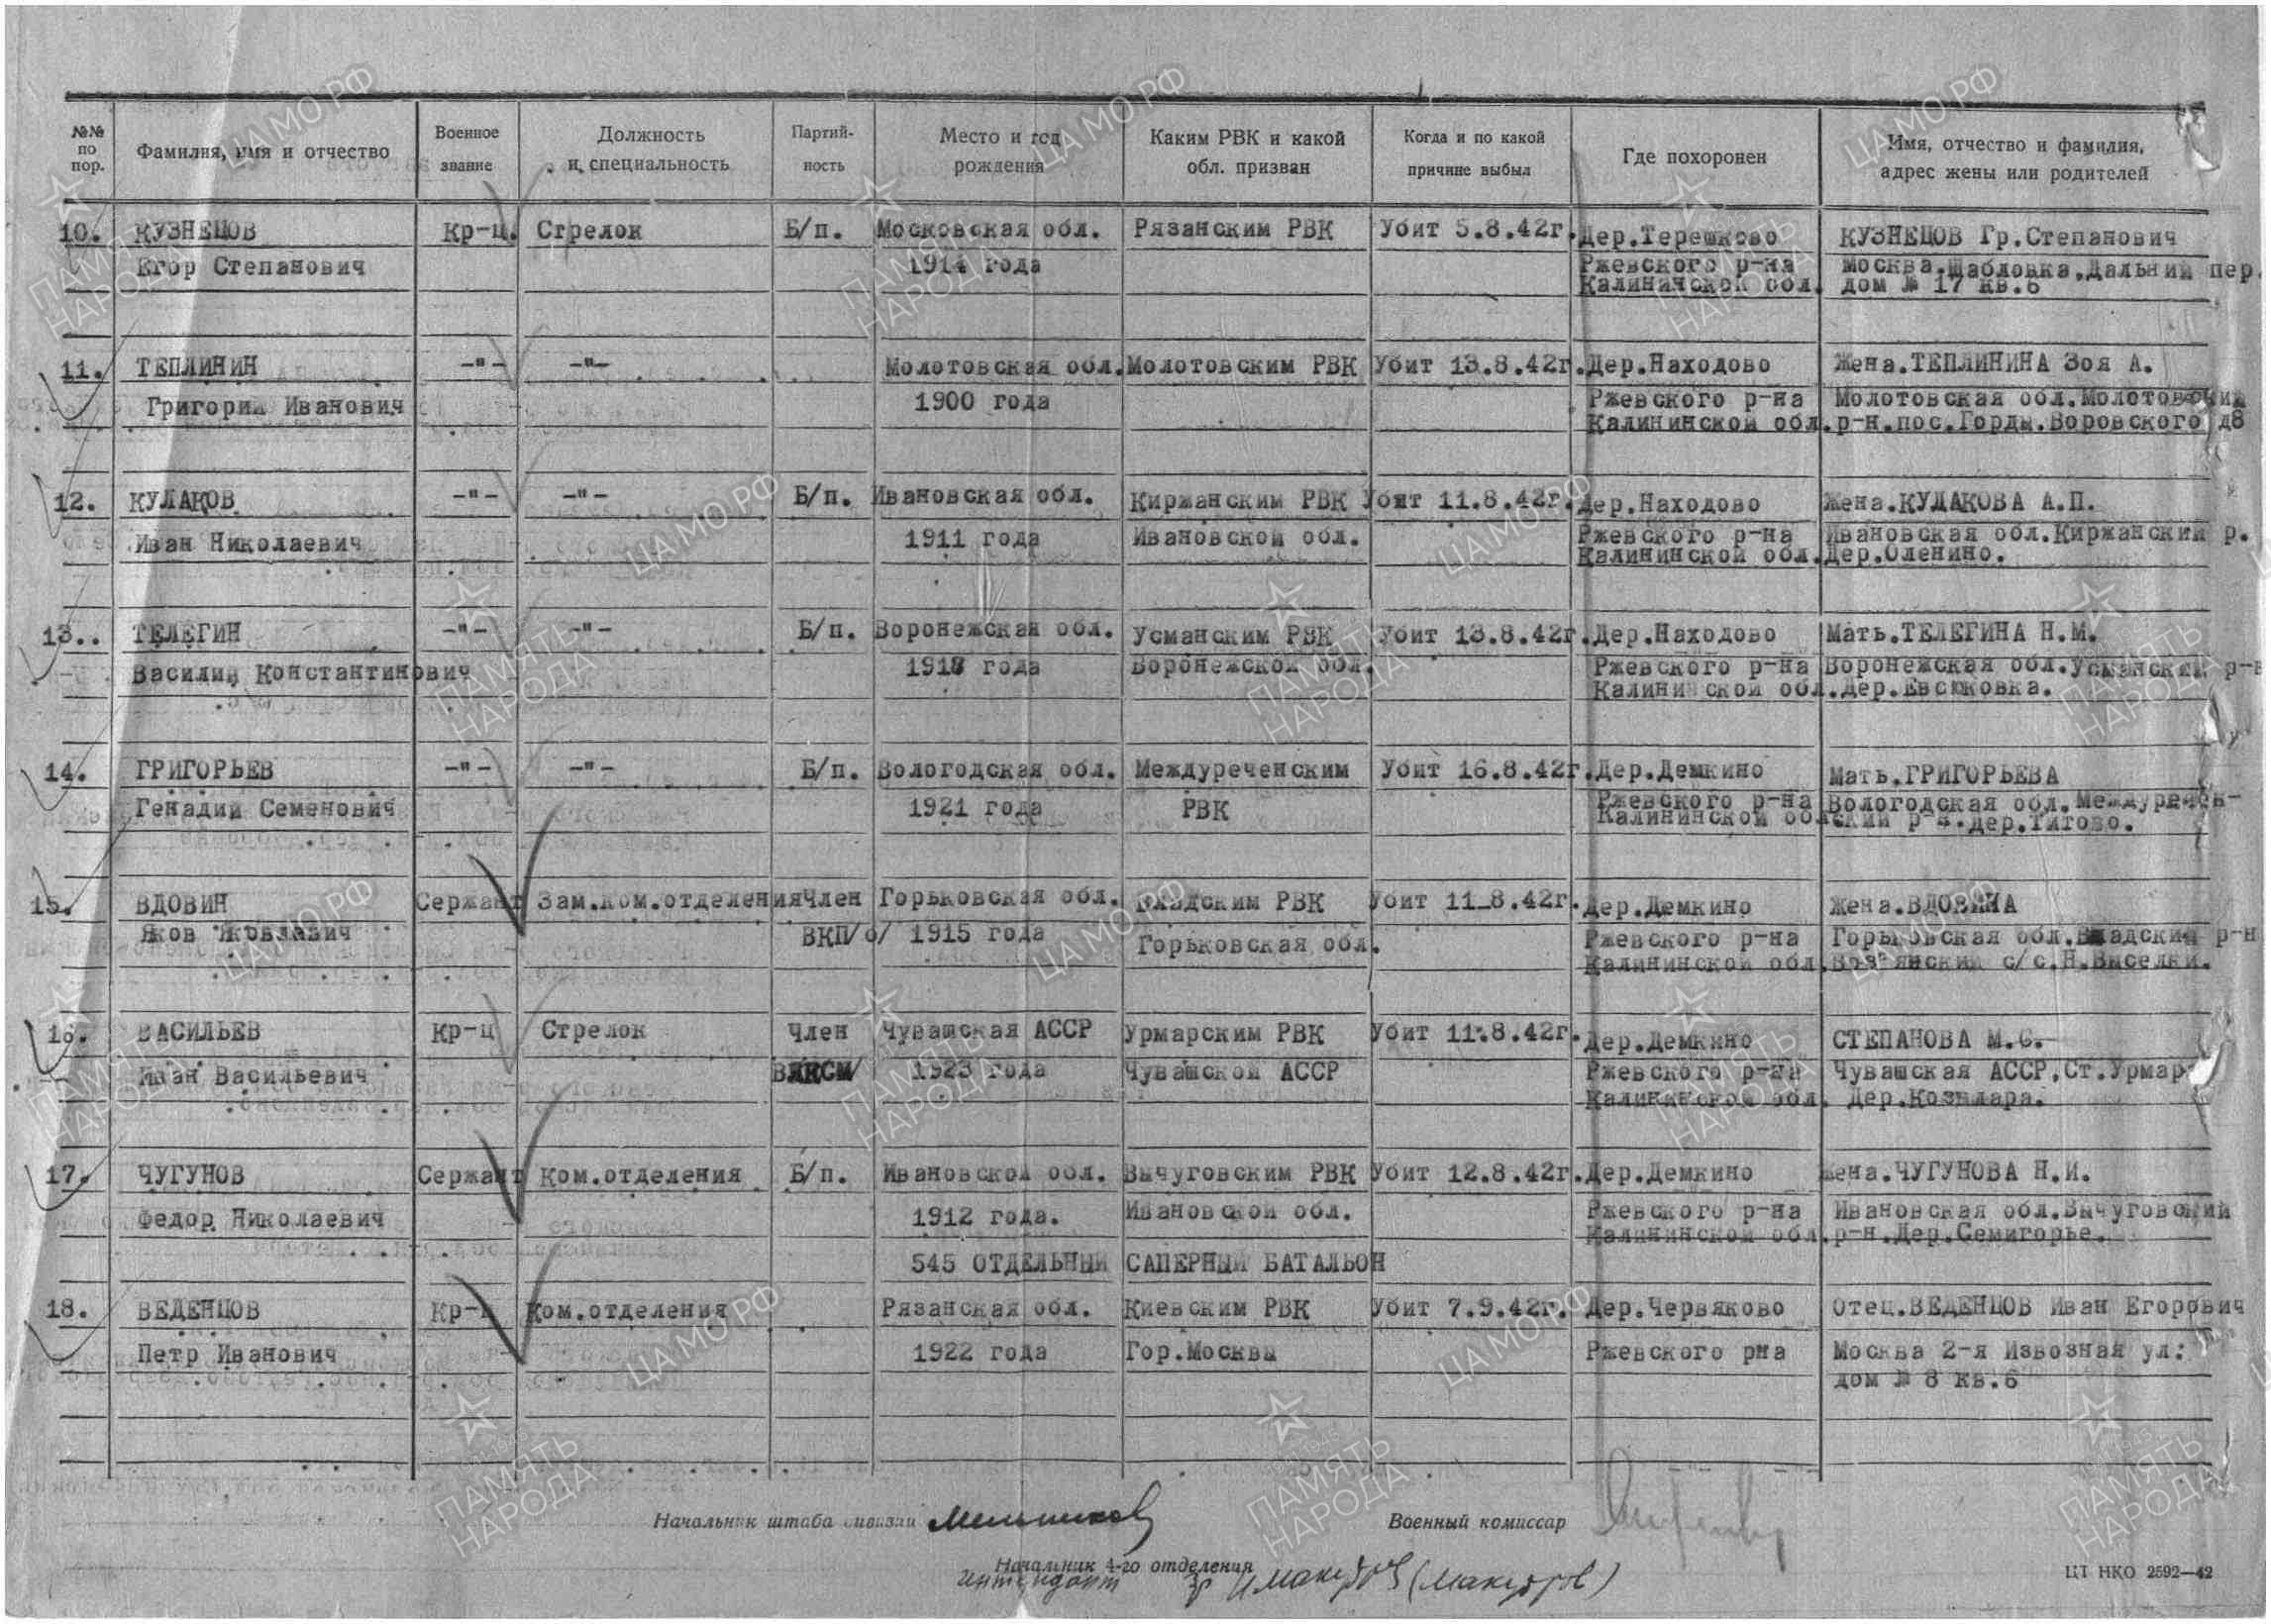 №№ по пор.
Фамилия, имя и отчество
Военное звание
Должность и специальность
Партий-ность
Место и год рождения
Каким РВК и какой обл. призван
Когда и по какой причине выбыл
Где похоронен
Имя, отчество и фамилия, адрес жены или родителей
10. КУЗНЕЦОВ Кр-ц. Стрелок Б/п. Московская обл. Рязанским РВК Убит 5.8.42г. Дер.Терешково КУЗНЕЦОВ Гр.Степанович
Егор Степанович 1914 года Ржевского р-на Москва.Шабловка.Дальний пер.
Калининской обл. дом № 17 кв.6
11. ТЕПЛИНИН -"- -"- Молотовская обл. Молотовским РВК Убит 13.8.42г. Дер.Находово Жена.ТЕПЛИНИНА Зоя А.
Григорий Иванович 1900 года Ржевского р-на Молотовская обл.Молотовский
Калининской обл. р-н.пос.Горды.Воровского д8
12. КУЛАКОВ -"- -"- Б/п. Ивановская обл. Киржанским РВК Убит 11.8.42г. Дер.Находово Жена.КУЛАКОВА А.П.
Иван Николаевич 1911 года Ивановской обл. Ржевского р-на Ивановская обл.Киржанский р.
Калининской обл. Дер.Оленино.
13.. ТЕЛЕГИН -"- -"- Б/п. Воронежская обл. Усманским РВК Убит 13.8.42г. Дер.Находово Мать.ТЕЛЕГИНА Н.М.
Василий Константинович 1918 года Воронежской обл. Ржевского р-на Воронежская обл.Усманский р-н
Калининской обл. Дер.Евсюковка.
14. ГРИГОРЬЕВ -"- -"- Б/п. Вологодская обл. Междуреченским Убит 16.8.42г. Дер.Демкино Мать.ГРИГОРЬЕВА
Генадий Семенович 1921 года РВК Ржевского р-на Вологодская обл.Междуречен-
Калининской обл ский р-н.дер.Титово.
15. ВДОВИН Сержант Зам.ком.отделения Член Горьковская обл. РВК Убит 11.8.42г. Дер.Демкино Жена.ВДОВИНА
Яков Яковлевич ВКП/б/ 1915 года Горьковская обл. Ржевского р-на Горьковская обл. р-н
Калининской обл. с/с.Н.Выселки.
16. ВАСИЛЬЕВ Кр-ц Стрелок Член Чувашская АССР Урмарским РВК Убит 11.8.42г. Дер.Демкино СТЕПАНОВА М.С.
Иван Васильевич ВЛКСМ 1923 года Чувашской АССР Ржевского р-на Чувашская АССР,Ст.Урмар
Калининской обл. Дер.Козылара.
17. ЧУГУНОВ Сержант Ком.отделения Б/п. Ивановской обл. Вычуговским РВК Убит 12.8.42г. Дер.Демкино Жена.ЧУГУНОВА Н.И.
Федор Николаевич 1912 года. Ивановской обл. Ржевского р-на Ивановская обл.Вычуговский
Калининской обл. р-н.Дер.Семигорье.
545 ОТДЕЛЬНЫЙ САПЕРНЫЙ БАТАЛЬОН
18. ВЕДЕНЦОВ Кр-ц Ком.отделения Рязанская обл. Киевским РВК Убит 7.9.42г. Дер.Червяково Отец.ВЕДЕНЦОВ Иван Егорович
Петр Иванович 1922 года Гор.Москвы Ржевского рна Москва 2-я Извозная ул:
дом № 8 кв.6
Начальник штаба дивизии Мельников Военный комиссар
Начальник 4-го отделения
Интендант 3р (Макаров)
ЦТ НКО 2592—42
ПАМЯТЬ НАРОДА
ЦАМО.РФ